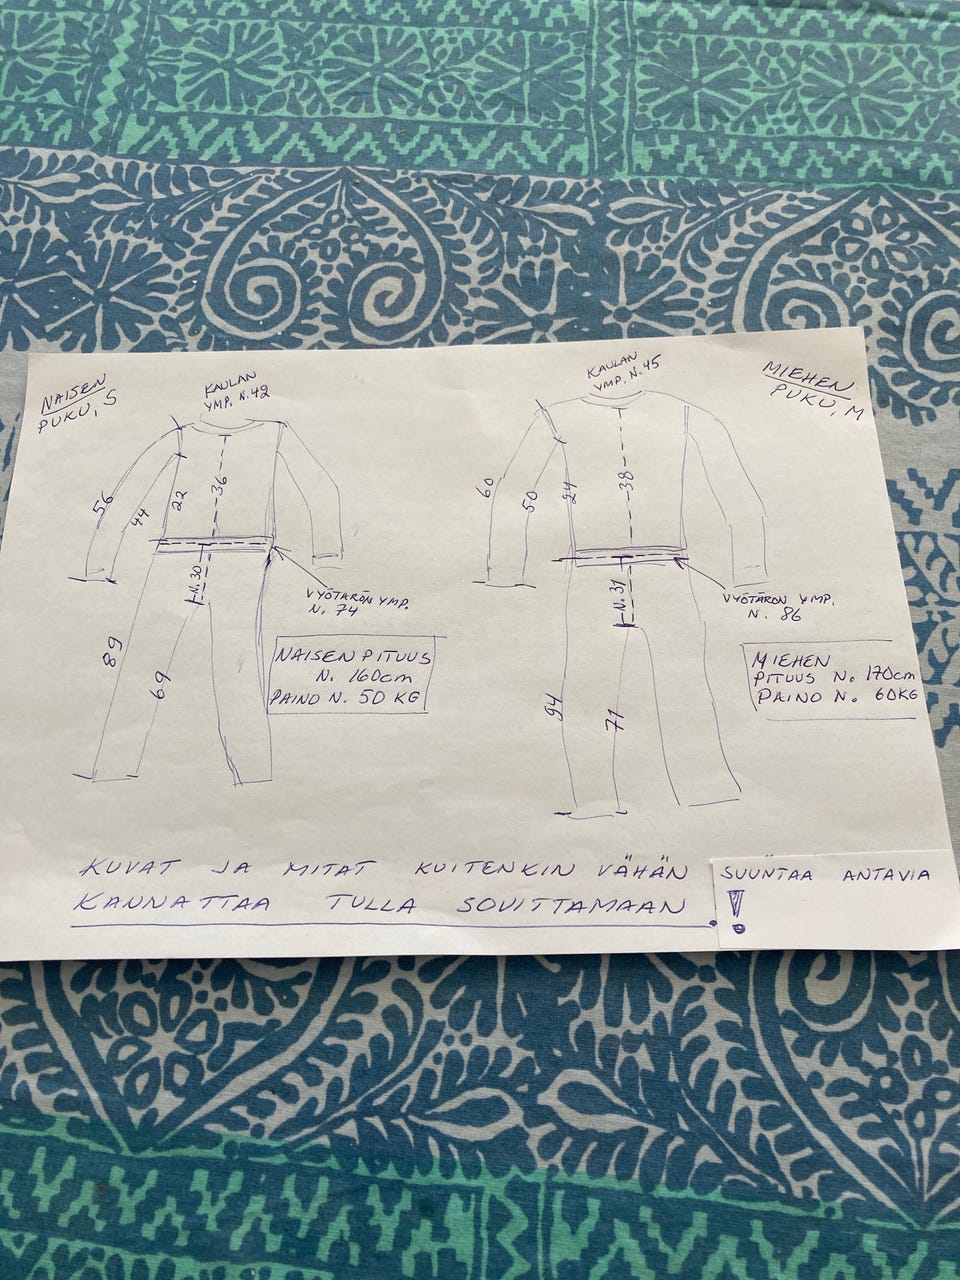 NAISEN
PUKU, S
KAULAN
YMP. N. 42
56
44
22
36
N. 30
VYÖTARÖN YMP.
N. 74
89
69
NAISEN PITUUS
N. 160cm
PAINO N. 50 KG
KAULAN
YMP. N. 45
MIEHEN
PUKU, M
60
50
24
38
N. 31
VYÖTARÖN YMP.
N. 86
94
71
MIEHEN
PITUUS N. 170cm
PAINO N. 60KG
KUVAT JA MITAT KUITENKIN VÄHÄN SUUNTAA ANTAVIA
!
KANNATTAA TULLA SOVITTAMAAN.